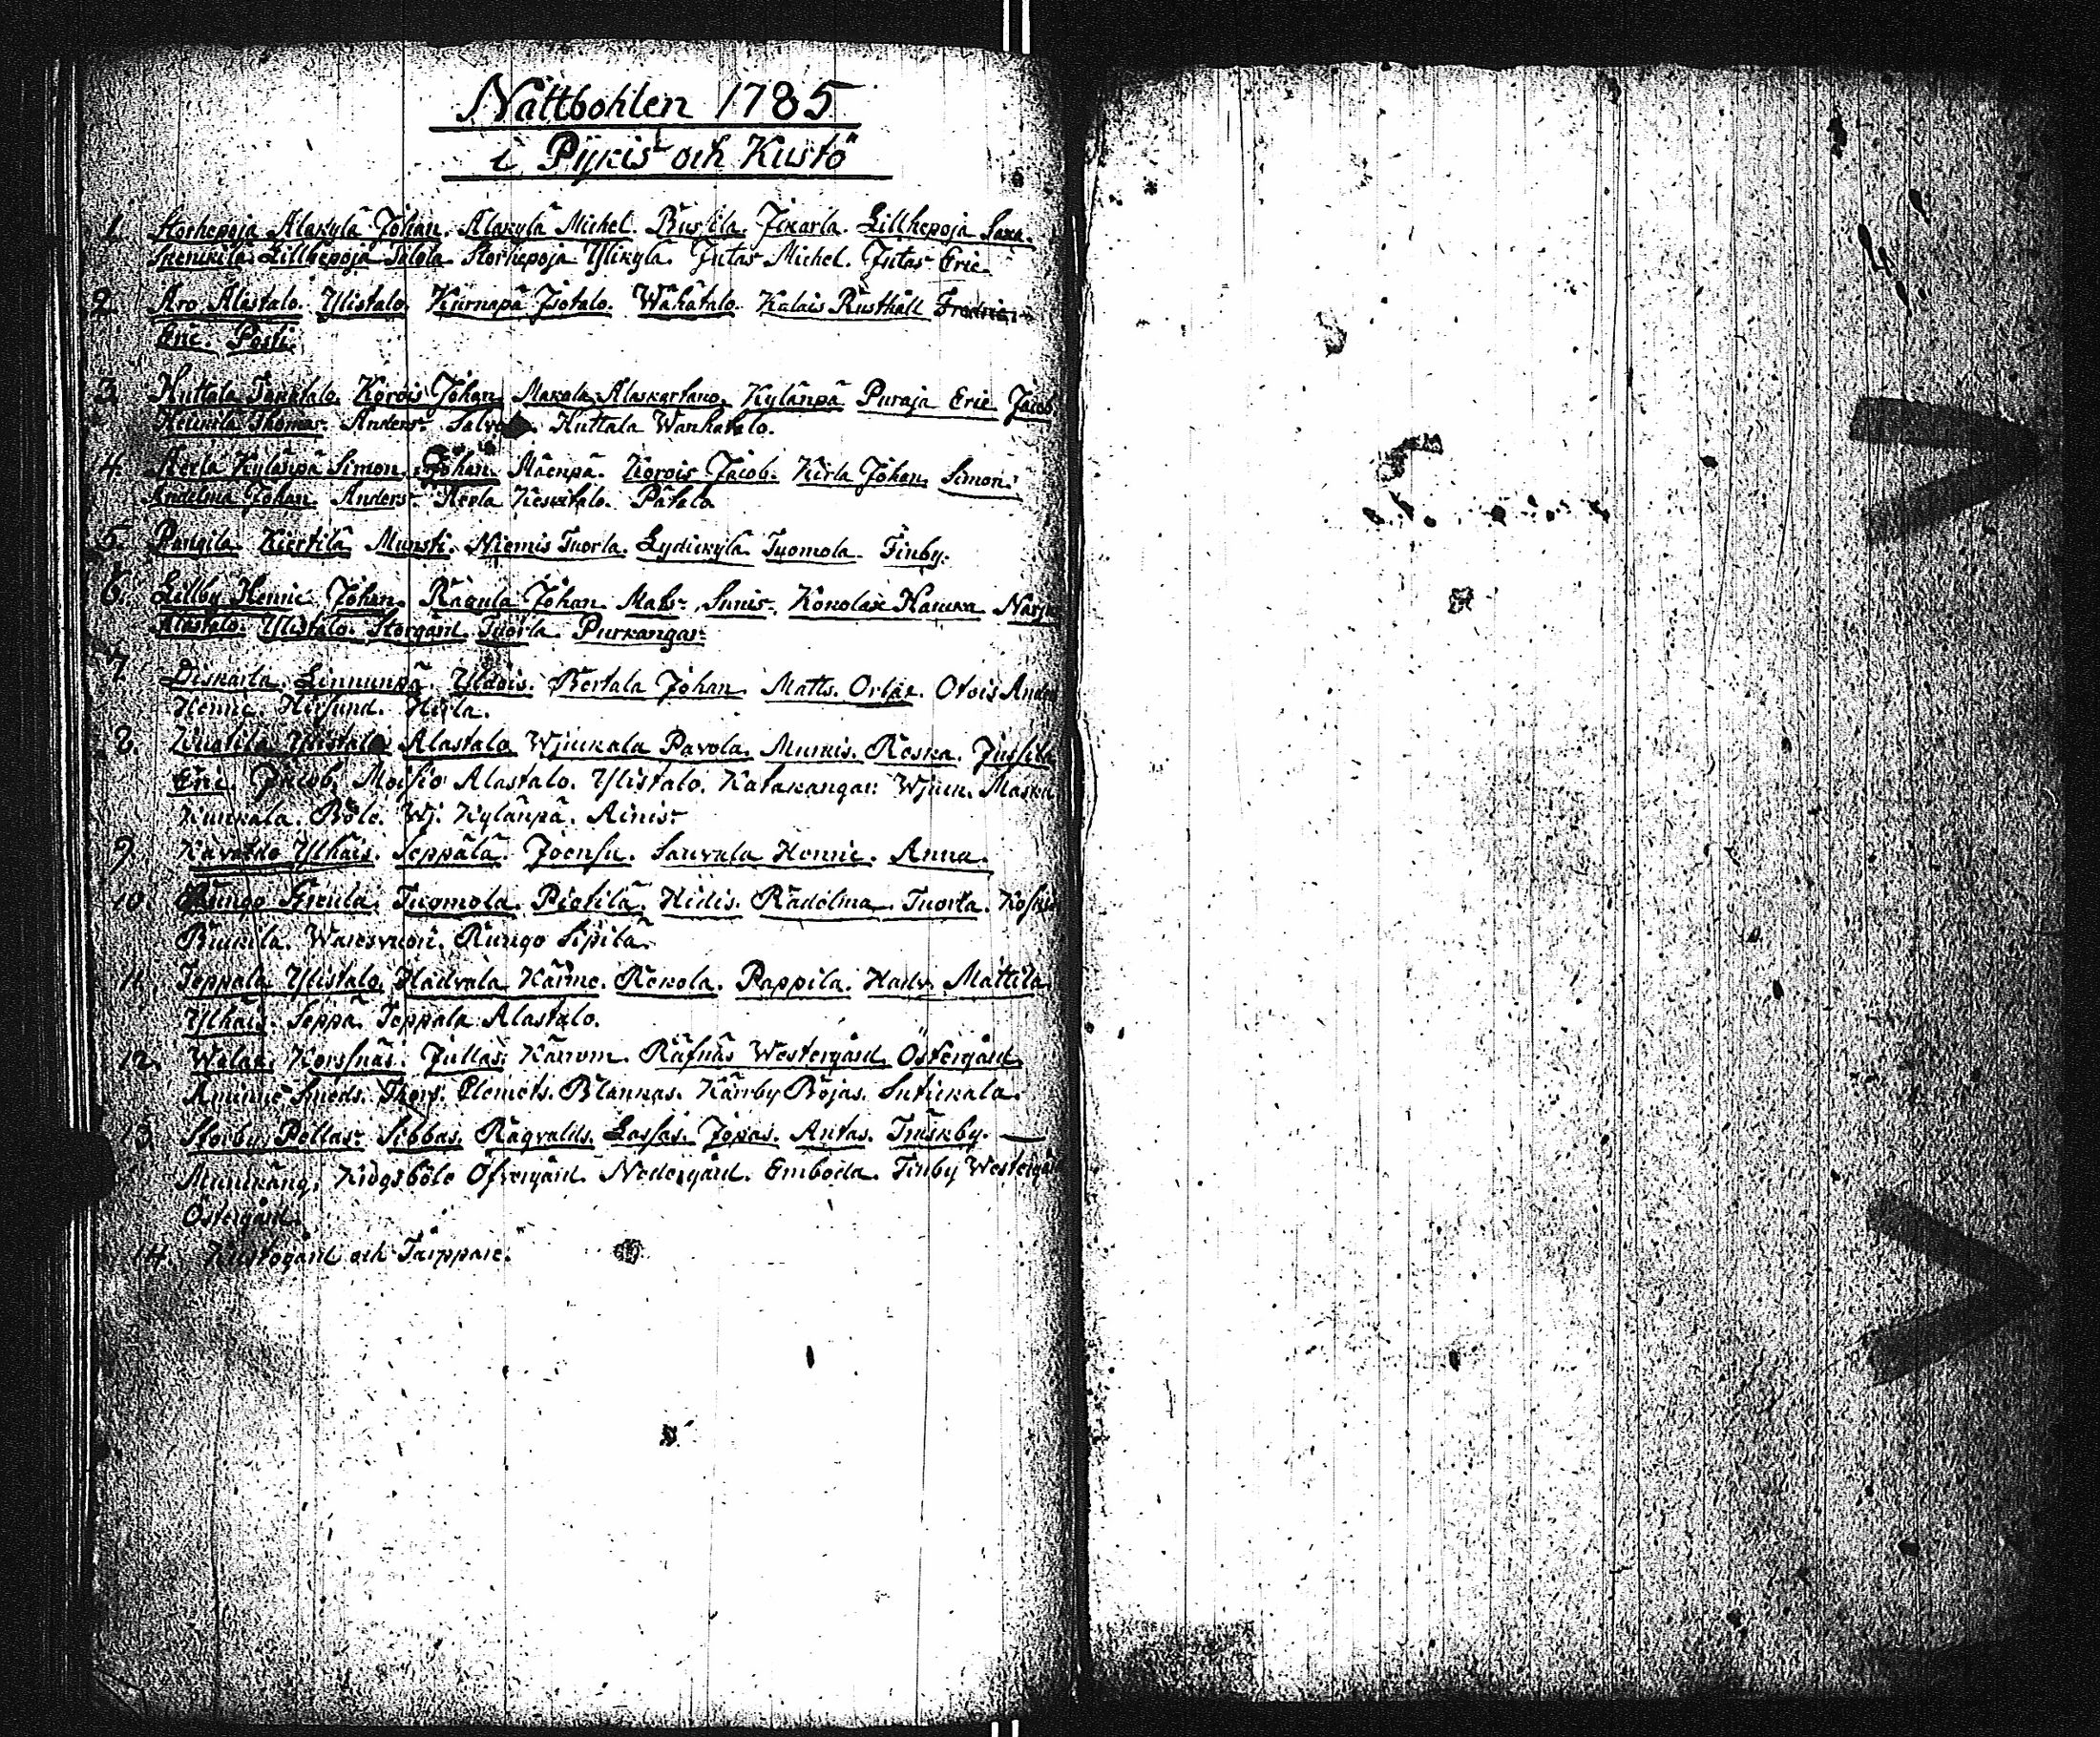 Nattbohlen 1785
i Pijkis och Kustö
1. Storhepoja Alakylä Johan. Alakylä Michel. Bussila. Jikarla. Lillhepoja Saxa.
Lillhepoja Talola. Storhepoja Ylikyla. Jutas Michel. Jutas Eric.
2. Aro Alastalo. Ylistalo. Kurnapä Isotalo. Wähätalo. Kalais Rusthåll
Eric. Posti.
3. Huttala Takatalo. Korois Johan. Makala Alaskartano. Kylänpä Puraja Eric Jacob
Heurila Thomas. Anders. Huttala Wanhatalo.
4. Kerla Kylänpä Simon. Johan. Mäenpä. Korois Jacob. Kirla Johan. Simon.
Andelma Johan. Anders. Kerla Keskitalo. Pätalo.
5. Pungila Kiertilä Munsti. Niemis Tuorla. Lydickylä. Tuomola. Finby.
6. Lillby Henric Johan. Rågula Johan Mats. Sunis. Konolax Hauka
Alastalo. Ylistalo. Storgård. Tuorla. Purkangas.
7. Diskarla. Linnunpä. Yldois. Bertala Johan. Matts. Orbäx. Otois
Henric. Hirsund. Hirla.
8. Ylistalo Alastalo Wjiukala Pavola. Munkis. Roska. Jussila
Eric. Jacob. Moisio Alastalo. Ylistalo. Katakangas: Wjiuk.
Kuukala. Böle. Wj. Kylänpä. Ainis.
9. Ylhäis. Seppälä. Joensu. Sauvala Henric. Anna.
10. Rungo Tuomola. Pietilä. Hidis. Rådelma. Tuorla.
Rungo Sipilä.
11. Teppala Ylistalo. Hadvala Härme. Rekola. Pappila. Hadv. Mattila.
Ylhäis. Seppä. Teppala Alastalo.
12. Wälax. Korsnäs. Jullas. Kärrom. Räfnäs Westergård. Östergård.
Aminne Smeds. Thors. Clemets. Blankas. Kärrby Böjas.
13. Storby Peltas. Sibbas. Ragvalds. Lassas. Jopas. Antas. Träskby. —
Munkäng. Krogsböle Öfvergård. Nedergård. Emboda. Finby
Östergård.
14. Kustogård och Tårppare.